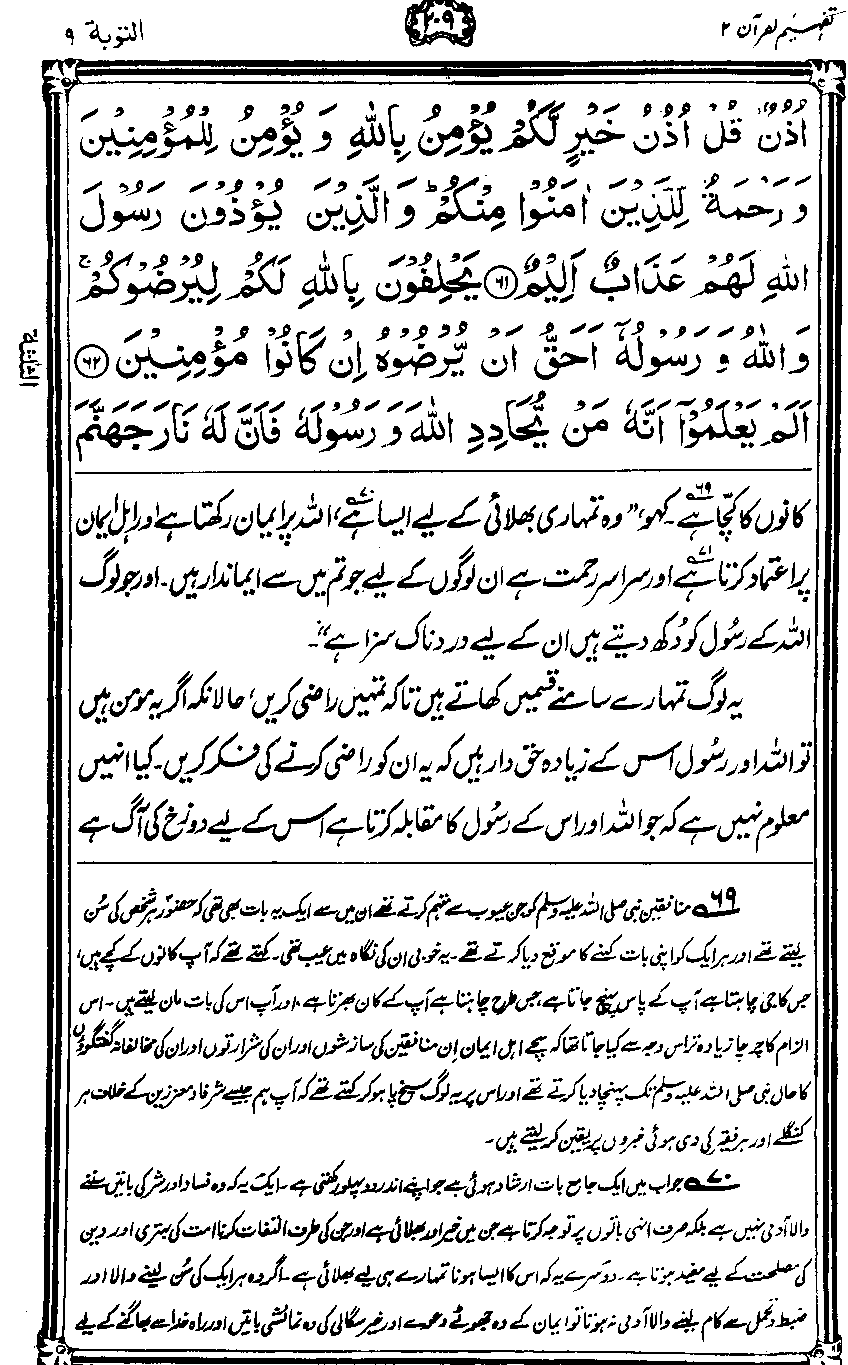 تفہیم القرآن ۲
۲۰۹
التوبۃ ۹
اُذُنٌ ؕ قُلْ اُذُنُ خَیْرٍ لَّكُمْ یُؤْمِنُ بِاللّٰهِ وَ یُؤْمِنُ لِلْمُؤْمِنِیْنَ
وَ رَحْمَةٌ لِّلَّذِیْنَ اٰمَنُوْا مِنْكُمْ ؕ وَ الَّذِیْنَ یُؤْذُوْنَ رَسُوْلَ
اللّٰهِ لَهُمْ عَذَابٌ اَلِیْمٌ ﴿۶۱﴾ یَحْلِفُوْنَ بِاللّٰهِ لَكُمْ لِیُرْضُوْكُمْ ۚ
وَ اللّٰهُ وَ رَسُوْلُهٗۤ اَحَقُّ اَنْ یُّرْضُوْهُ اِنْ كَانُوْا مُؤْمِنِیْنَ ﴿۶۲﴾
اَلَمْ یَعْلَمُوْۤا اَنَّهٗ مَنْ یُّحَادِدِ اللّٰهَ وَ رَسُوْلَهٗ فَاَنَّ لَهٗ نَارَ جَهَنَّمَ
کانوں کا کچّا ہے۶۹۔ کہو، ”وہ تمہاری بھلائی کے لیے ایسا ہے۷۰، اللہ پر ایمان رکھتا ہے اور اہل ایمان
پر اعتماد کرتا ہے۷۱ اور سراسر رحمت ہے ان لوگوں کے لیے جو تم میں سے ایماندار ہیں۔ اور جو لوگ
اللہ کے رسُول کو دُکھ دیتے ہیں ان کے لیے دردناک سزا ہے“۔
یہ لوگ تمہارے سامنے قسمیں کھاتے ہیں تاکہ تمہیں راضی کریں، حالانکہ اگر یہ مومن ہیں
تو اللہ اور رسُول اس کے زیادہ حق دار ہیں کہ یہ ان کو راضی کرنے کی فکر کریں۔ کیا انہیں
معلوم نہیں ہے کہ جو اللہ اور اس کے رسُول کا مقابلہ کرتا ہے اس کے لیے دوزخ کی آگ ہے
۶۹ منافقین نبی صلی اللہ علیہ وسلم کو جن عیوب سے متہم کرتے تھے ان میں سے ایک یہ بات بھی تھی کہ حضورؐ ہر شخص کی سُن
لیتے تھے اور ہر ایک کو اپنی بات کہنے کا موقع دیا کرتے تھے۔ یہ خوبی ان کی نگاہ میں عیب تھی۔ کہتے تھے کہ آپ کانوں کے کچے ہیں،
جس کا جی چاہتا ہے آپ کے پاس پہنچ جاتا ہے، جس طرح چاہتا ہے آپ کے کان بھرتا ہے، اور آپ اس کی بات مان لیتے ہیں۔ اس
الزام کا چرچا زیادہ تر اس وجہ سے کیا جاتا تھا کہ سچے اہل ایمان اِن منافقین کی سازشوں اور ان کی شرارتوں اور ان کی مخالفانہ گفتگوؤں
کا حال نبی صلی اللہ علیہ وسلم تک پہنچا دیا کرتے تھے اور اس پر یہ لوگ سیخ پا ہو کر کہتے تھے کہ آپ ہم جیسے شرفاء و معززین کے خلاف ہر
کنگلے اور ہر فقیر کی دی ہوئی خبروں پر یقین کر لیتے ہیں۔
۷۰ جواب میں ایک جامع بات ارشاد ہوئی ہے جو اپنے اندر دو پہلو رکھتی ہے۔ ایک یہ کہ وہ فساد اور شر کی باتیں سننے
والا آدمی نہیں ہے بلکہ صرف انہی باتوں پر توجہ کرتا ہے جن میں خیر اور بھلائی ہے اور جن کی طرف التفات کرنا امت کی بہتری اور دین
کی مصلحت کے لیے مفید ہوتا ہے۔ دوسرے یہ کہ اس کا ایسا ہونا تمہارے ہی لیے بھلائی ہے۔ اگر وہ ہر ایک کی سُن لینے والا اور
ضبط و تحمل سے کام لینے والا آدمی نہ ہوتا تو ایمان کے وہ جھوٹے دعوے اور خیر سگالی کی وہ نمائشی باتیں اور راہ خدا سے بھاگنے کے لیے